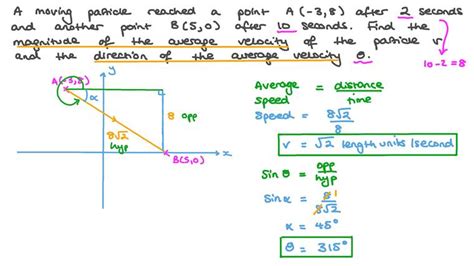 A moving particle reached a point A(-3,8) after 2 seconds
and another point B(5,0) after 10 seconds. Find the
magnitude of the average velocity of the particle v
and the direction of the average velocity θ.
10-2=8
A(-3,8)
y
α
8 opp
8√2
hyp
B(5,0)
x
Average speed = distance/time
Speed = 8√2/8
v = √2 length units/second
Sin θ = opp/hyp
Sin α = 8/8√2
1
α = 45°
θ = 315°